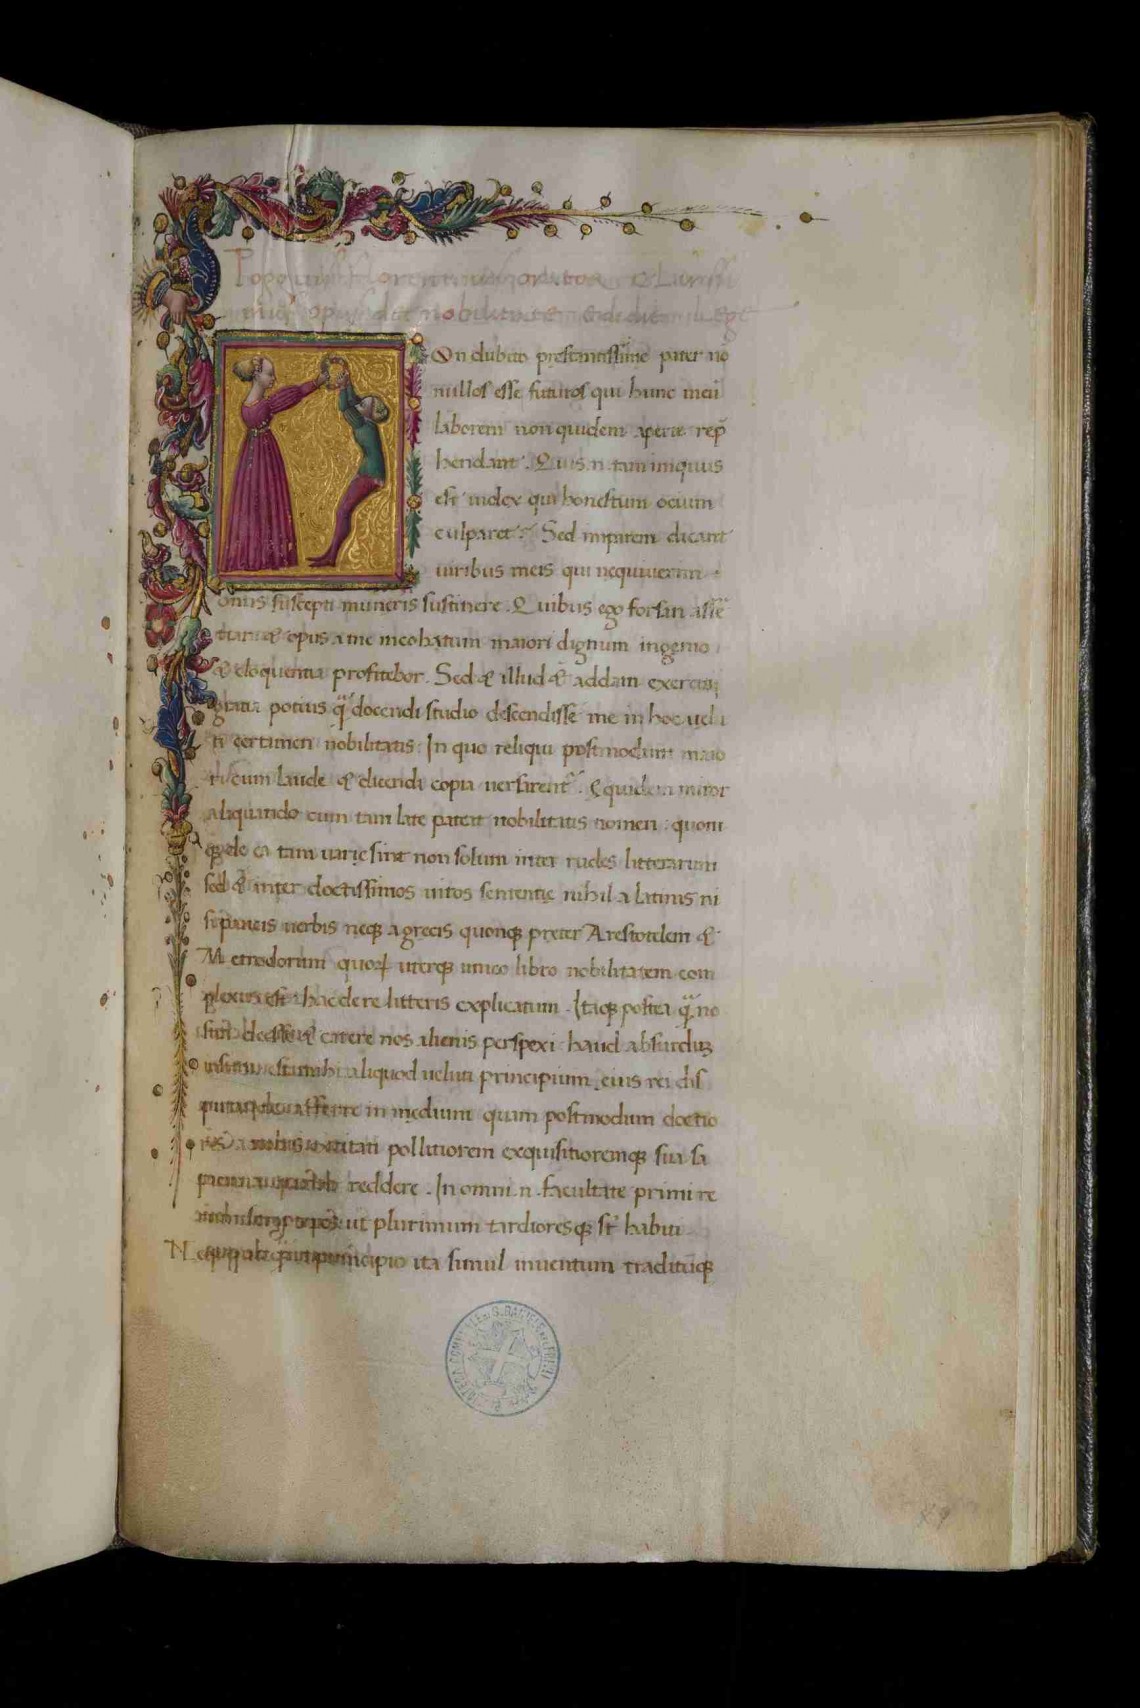 Poggius florentinus orator clariss
opus de nobilitate edidit lege
On dubito prestantissime pater nõ
nullos esse futuros qui hunc meũ
laborem non quidem aperte rep̃
hendant. Quis .n. tam iniquus
est iudex qui honestum ocium
culparet? Sed imparem dicant
uiribus meis qui nequiuerim
onus suscepti muneris sustinere. Quibus ego forsan assẽ
tiar & opus a me incohatum maiori dignum ingenio
& eloquentia profitebor. Sed & illud & addam exercita
gratia potius q̃ docendi studio descendisse me in hoc uelu
ti certamen nobilitatis. In quo reliqui postmodum maio
ri cum laude & dicendi copia uersarent᷑. Equidem miror
aliquando cum tam late pateat nobilitatis nomen: quom
qȝ de ea tam uarie sint non solum inter rudes litterarum
sed & inter doctissimos uiros sententie nihil a latinis ni
si paucis uerbis neqȝ a grecis quoqȝ preter Arestotelem &
Metrodorum quoꝝ uterqȝ unico libro nobilitatem com
plexus est hac de re litteris explicatum. Itaqȝ postea q̃ no
deesse & carere nos alienis perspexi haud absurdũ
aliquod ueluti principium eius rei dis
afferre in medium quam postmodum doctio
pollitiorem exquisitioremqȝ sua sa
reddere. In omni .n. facultate primi re
ut plurimum tardioresqȝ st̃ habiti
principio ita simul inuentum traditũqȝ